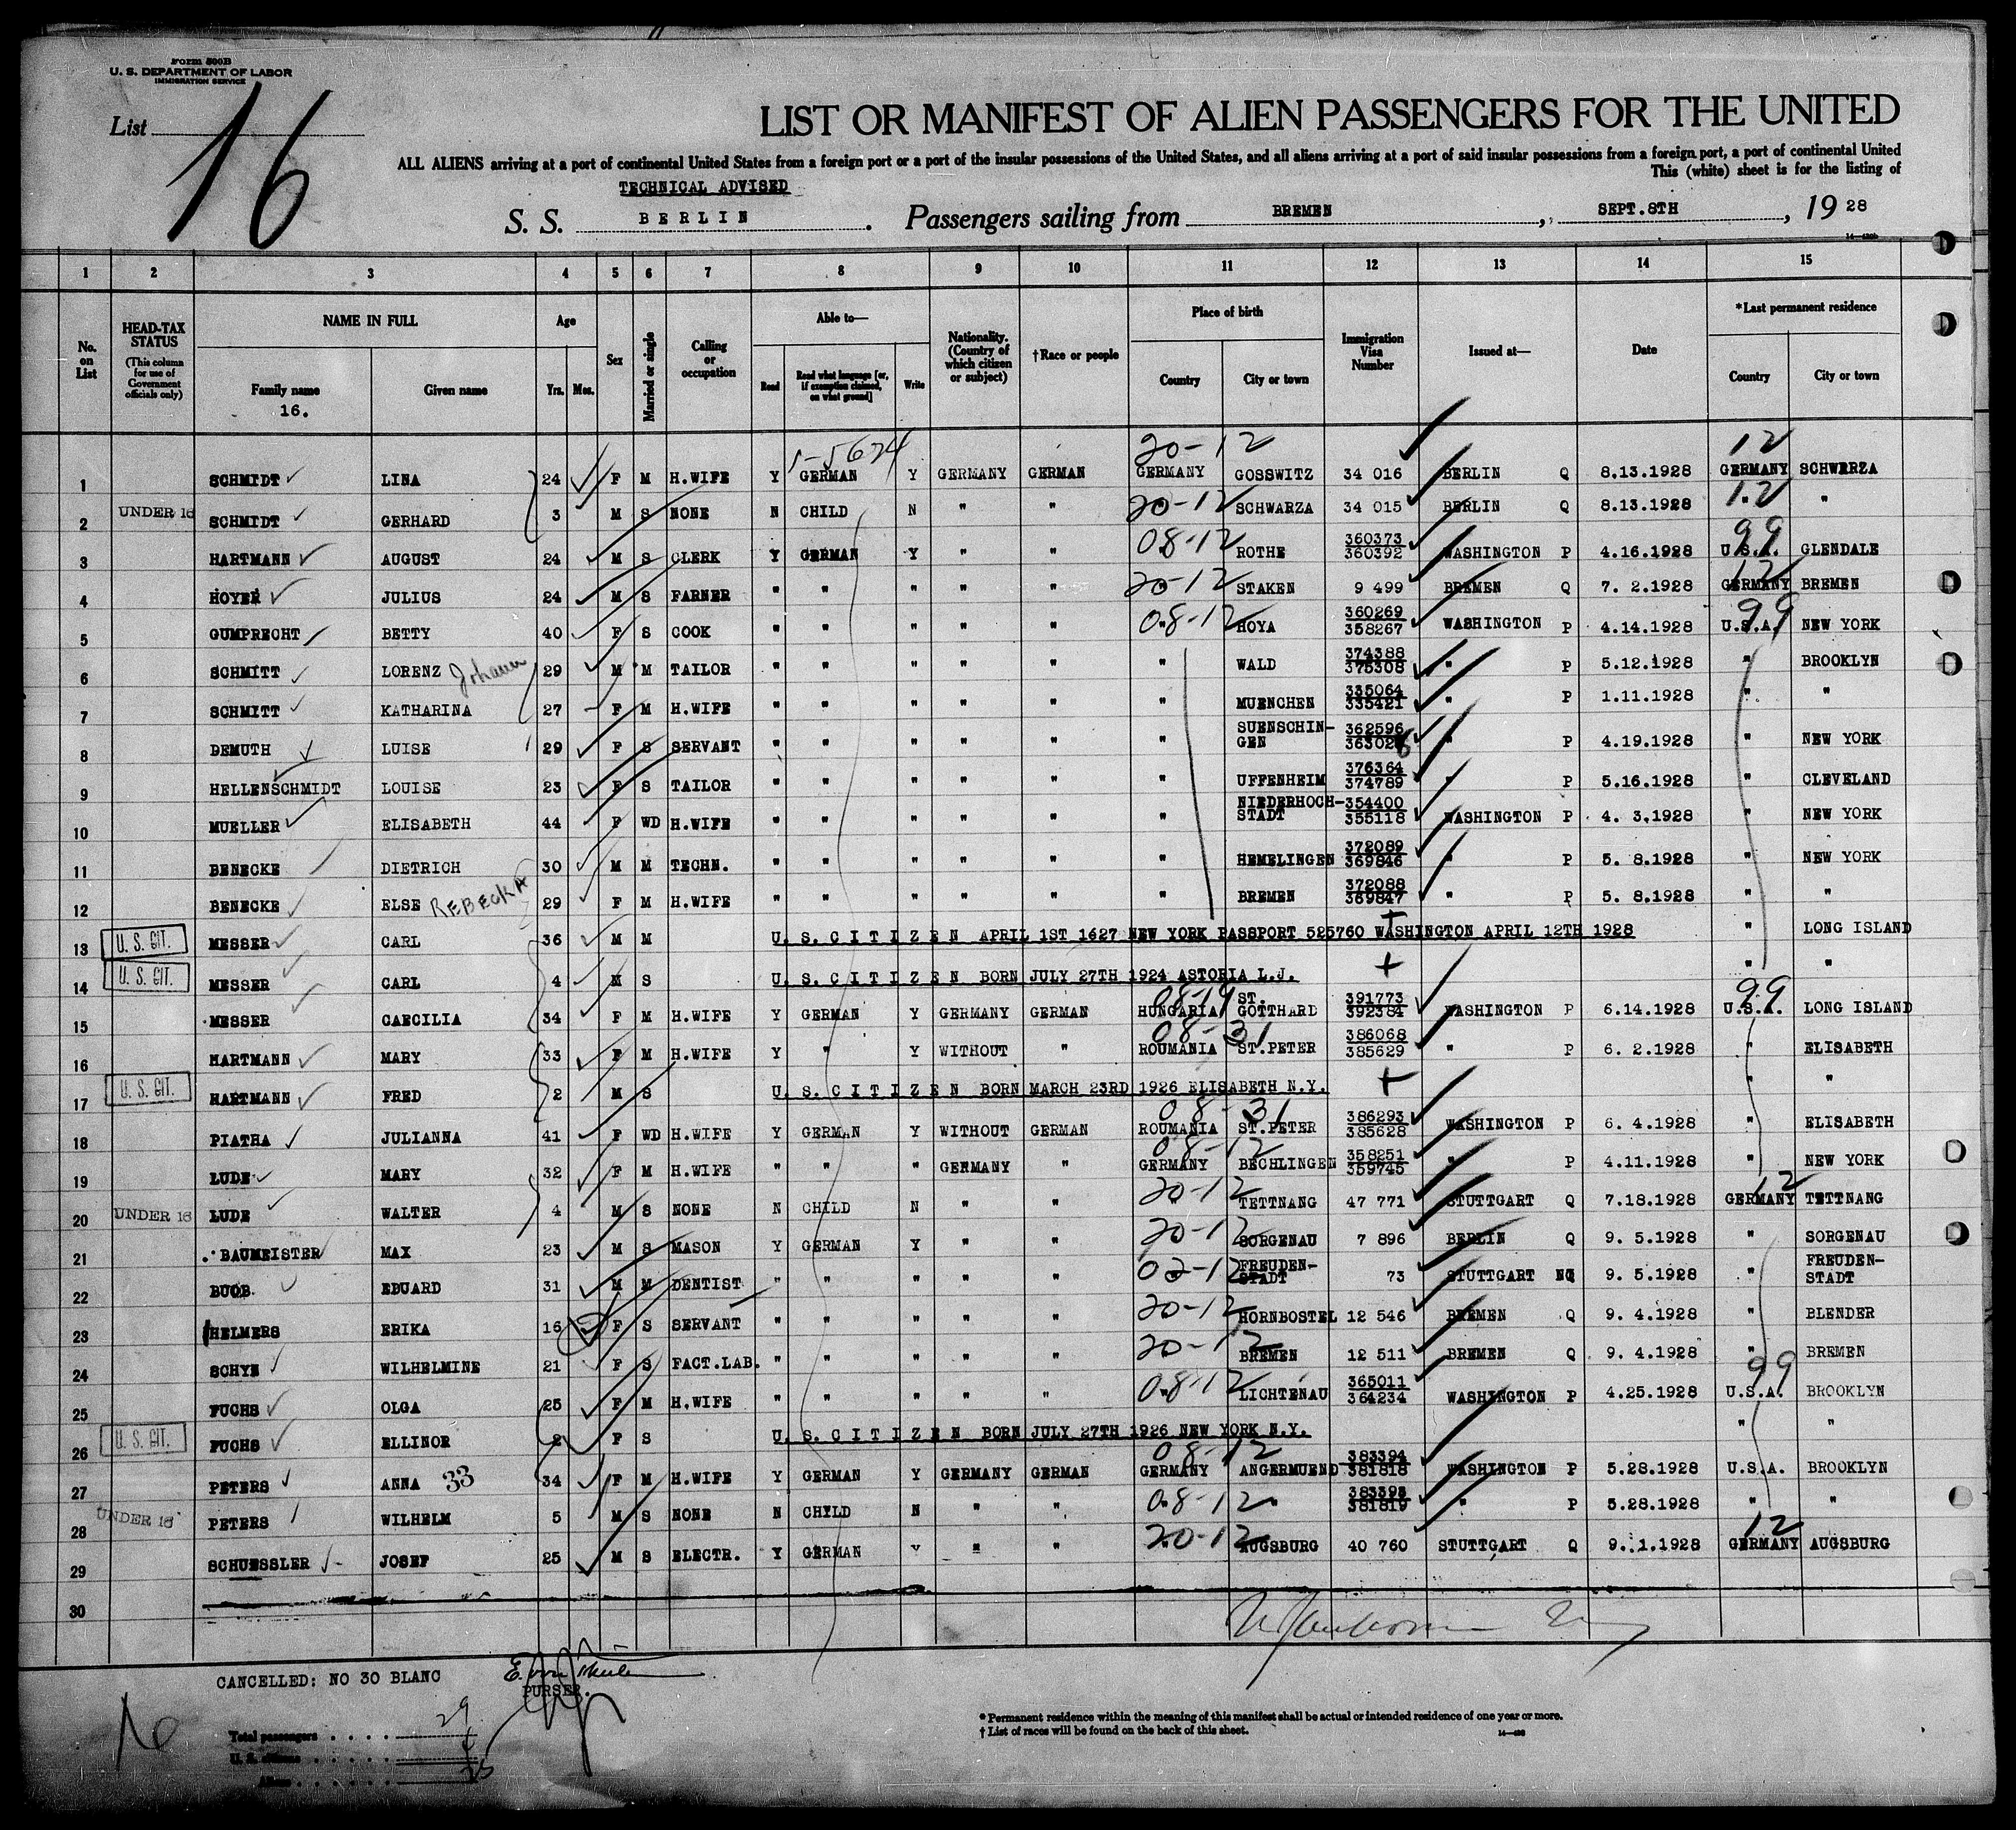 Form 500B
U. S. DEPARTMENT OF LABOR
IMMIGRATION SERVICE
List 16
LIST OR MANIFEST OF ALIEN PASSENGERS FOR THE UNITED
ALL ALIENS arriving at a port of continental United States from a foreign port or a port of the insular possessions of the United States, and all aliens arriving at a port of said insular possessions from a foreign port, a port of continental United
This (white) sheet is for the listing of
TECHNICAL ADVISED
S. S. BERLIN. Passengers sailing from BREMEN, SEPT.8TH, 19 28
1 2 3 4 5 6 7 8 9 10 11 12 13 14 15
No. on List
HEAD-TAX STATUS (This column for use of Government officials only)
NAME IN FULL
Family name 16.
Given name
Age
Yrs. Mos.
Sex
Married or single
Calling or occupation
Able to—
Read
Read what language [or, if exemption claimed, on what ground]
Write
Nationality. (Country of which citizen or subject)
†Race or people
Place of birth
Country
City or town
Immigration Visa Number
Issued at—
Date
*Last permanent residence
Country
City or town
5-5674 20-12 12
1 SCHMIDT LINA 24 F M H.WIFE Y GERMAN Y GERMANY GERMAN GERMANY GOSSWITZ 34 016 BERLIN Q 8.13.1928 GERMANY SCHWRZA
2 UNDER 16 SCHMIDT GERHARD 3 M S NONE N CHILD N " " 20-12 SCHWARZA 34 015 BERLIN Q 8.13.1928 12 "
3 HARTMANN AUGUST 24 M S CLERK Y GERMAN Y " " 08-12 ROTHE 360373 360392 WASHINGTON P 4.16.1928 99 U.S.A. GLENDALE
4 HOYER JULIUS 24 M S FARNER " " " " " 20-12 STAKEN 9 499 BREMEN Q 7. 2.1928 12 GERMANY BREMEN
5 GUMPRECHT BETTY 40 F S COOK " " " " " 08-12 HOYA 360269 358267 WASHINGTON P 4.14.1928 99 U.S.A. NEW YORK
6 SCHMITT LORENZ Johann 29 M M TAILOR " " " " " " WALD 374388 375308 " P 5.12.1928 " BROOKLYN
7 SCHMITT KATHARINA 27 F M H.WIFE " " " " " " MUENCHEN 335064 335421 " P 1.11.1928 " "
8 DEMUTH LUISE 29 F S SERVANT " " " " " " SUENSCHIN-GEN 362596 363026 " P 4.19.1928 " NEW YORK
9 HELLENSCHMIDT LOUISE 23 F S TAILOR " " " " " " UFFENHEIM 376364 374789 " P 5.16.1928 " CLEVELAND
10 MUELLER ELISABETH 44 F WD H.WIFE " " " " " " NIEDERHOCH-STADT 354400 355118 WASHINGTON P 4. 3.1928 " NEW YORK
11 BENECKE DIETRICH 30 M M TECHN. " " " " " " HEMELINGEN 372089 369846 " P 5. 8.1928 " NEW YORK
12 BENECKE ELSE REBECKA 29 F M H.WIFE " " " " " " BREMEN 372088 369847 " P 5. 8.1928 " "
13 U. S. CIT. MESSER CARL 36 M M U. S. C I T I Z E N APRIL 1ST 1627 NEW YORK PASSPORT 525760 WASHINGTON APRIL 12TH 1928 " LONG ISLAND
14 U. S. CIT. MESSER CARL 4 M S U. S. C I T I Z E N BORN JULY 27TH 1924 ASTORIA L.J. " "
15 MESSER CAECILIA 34 F M H.WIFE Y GERMAN Y GERMANY GERMAN 08-19 HUNGARIA ST. GOTTHARD 391773 392384 WASHINGTON P 6.14.1928 99 U.S.A. LONG ISLAND
16 HARTMANN MARY 33 F M H.WIFE Y " Y WITHOUT " 08-31 ROUMANIA ST.PETER 386068 385629 " P 6. 2.1928 " ELISABETH
17 U. S. CIT. HARTMANN FRED 2 M S U. S. C I T I Z E N BORN MARCH 23RD 1926 ELISABETH N.Y. " "
18 PIATHA JULIANNA 41 F WD H.WIFE Y GERMAN Y WITHOUT GERMAN 08-31 ROUMANIA ST.PETER 386293 385628 WASHINGTON P 6. 4.1928 " ELISABETH
19 LUDE MARY 32 F M H.WIFE " " " GERMANY " 08-12 GERMANY BECHLINGEN 358251 359745 " P 4.11.1928 " NEW YORK
20 UNDER 16 LUDE WALTER 4 M S NONE N CHILD N " " 20-12 " TETTNANG 47 771 STUTTGART Q 7.18.1928 12 GERMANY TETTNANG
21 BAUMEISTER MAX 23 M S MASON Y GERMAN Y " " 20-12 SORGENAU 7 896 BERLIN Q 9. 5.1928 " SORGENAU
22 BUOB. EDUARD 31 M M DENTIST " " " " " 02-12 FREUDEN-STADT 73 STUTTGART NQ 9. 5.1928 " FREUDEN-STADT
23 HELMERS ERIKA 16 F S SERVANT " " " " " 20-12 HORNBOSTEL 12 546 BREMEN Q 9. 4.1928 " BLENDER
24 SCHYE WILHELMINE 21 F S FACT.LAB. " " " " " 20-12 BREMEN 12 511 BREMEN Q 9. 4.1928 " BREMEN
25 FUCHS OLGA 25 F M H.WIFE " " " " " 08-12 LICHTENAU 365011 364234 WASHINGTON P 4.25.1928 99 U.S.A. BROOKLYN
26 U. S. CIT. FUCHS ELLINOR 2 F S U. S. C I T I Z E N BORN JULY 27TH 1926 NEW YORK N.Y. " "
27 PETERS ANNA 33 34 F M H.WIFE Y GERMAN Y GERMANY GERMAN 08-12 GERMANY ANGERMUEND 383394 381818 WASHINGTON P 5.28.1928 U.S.A. BROOKLYN
28 UNDER 16 PETERS WILHELM 5 M S NONE N CHILD N " " 08-12 " 383393 381819 " P 5.28.1928 " "
29 SCHUESSLER JOSEF 25 M S ELECTR. Y GERMAN Y " " 20-12 AUGSBURG 40 760 STUTTGART Q 9.1.1928 12 GERMANY AUGSBURG
30
CANCELLED: NO 30 BLANC
PURSER.
Total passengers 29
U. S. citizens
Aliens 25
* Permanent residence within the meaning of this manifest shall be actual or intended residence of one year or more.
† List of races will be found on the back of this sheet.